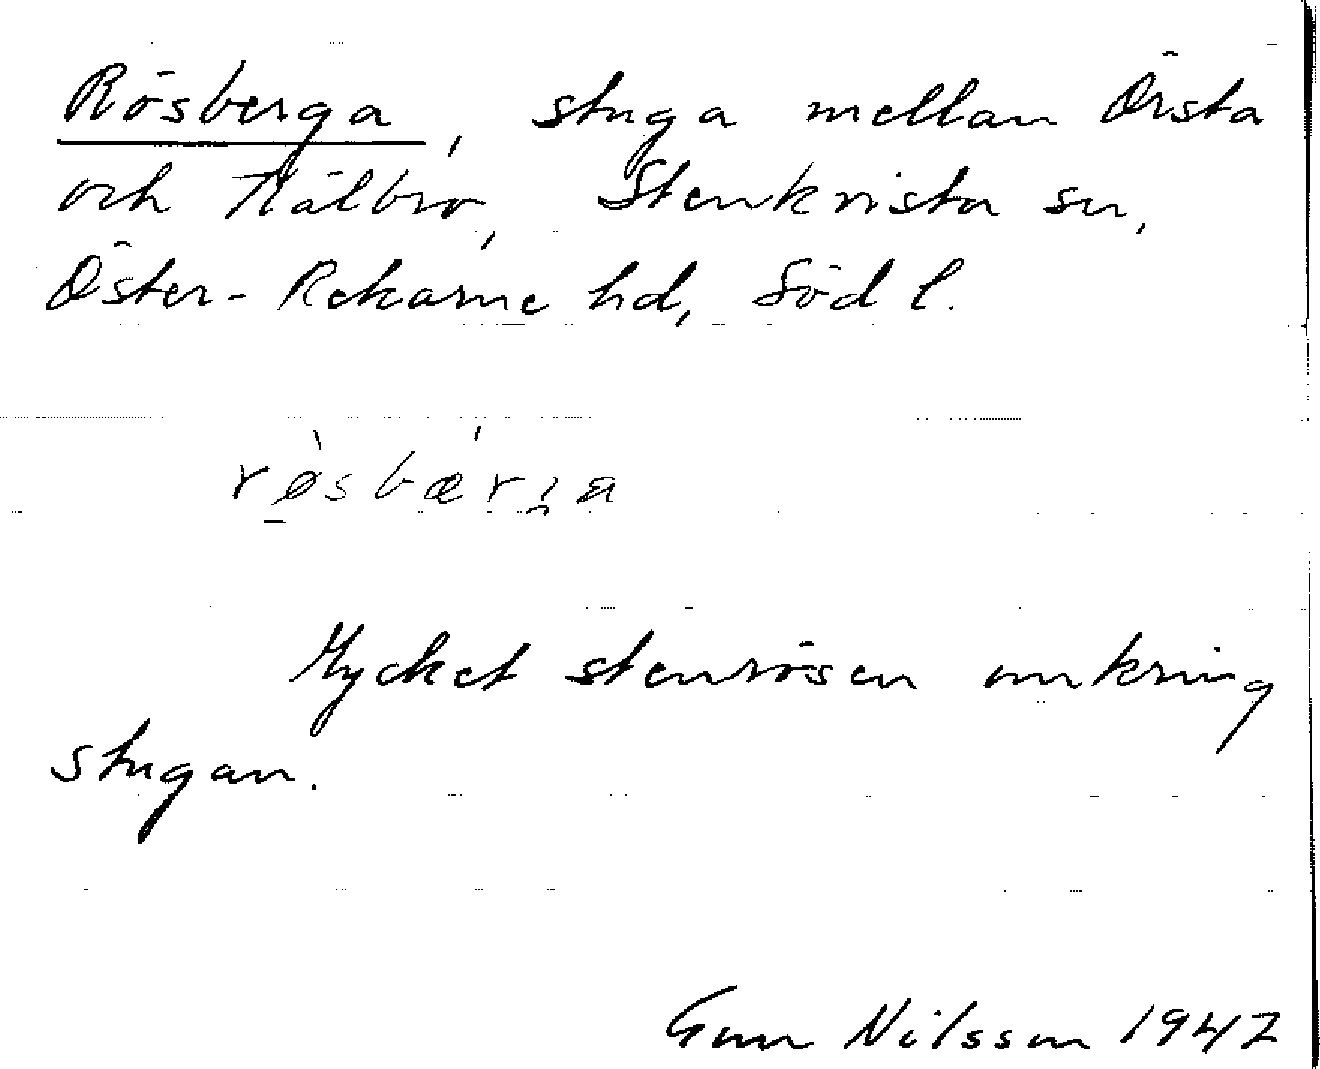 Rösberga, stuga mellan Örsta
och Hålbro, Stenkvista sn,
Öster-Rekarne hd, Söd l.
Mycket stenrösen omkring
stugan.
Gun Nilsson 1947